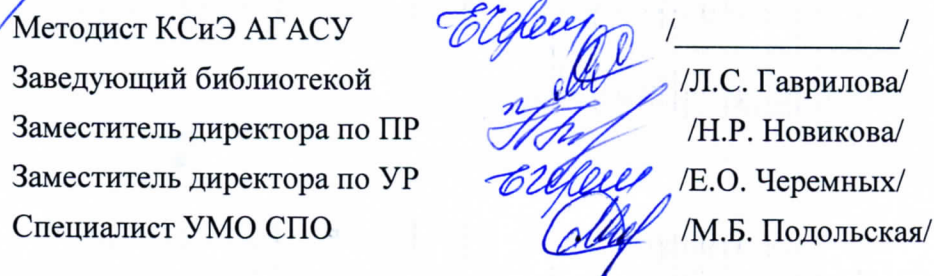 Методист КСиЭ АГАСУ /________________/
Заведующий библиотекой /Л.С. Гаврилова/
Заместитель директора по ПР /Н.Р. Новикова/
Заместитель директора по УР /Е.О. Черемных/
Специалист УМО СПО /М.Б. Подольская/